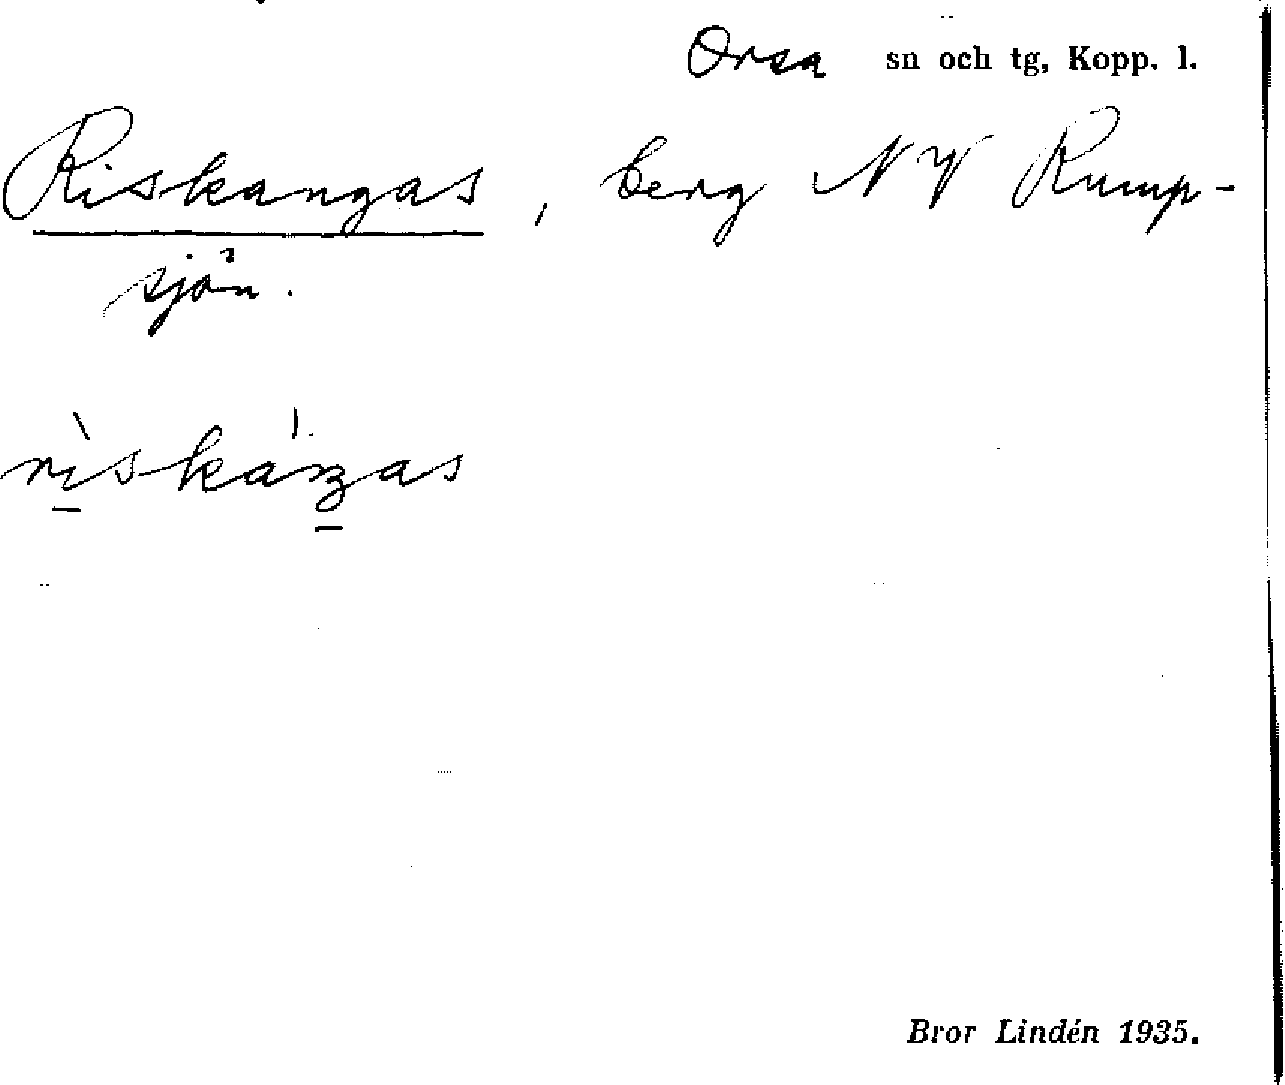 Orsa sn och tg, Kopp. l.
Riskangas, berg NV Rump-
sjön.
Bror Lindén 1935.